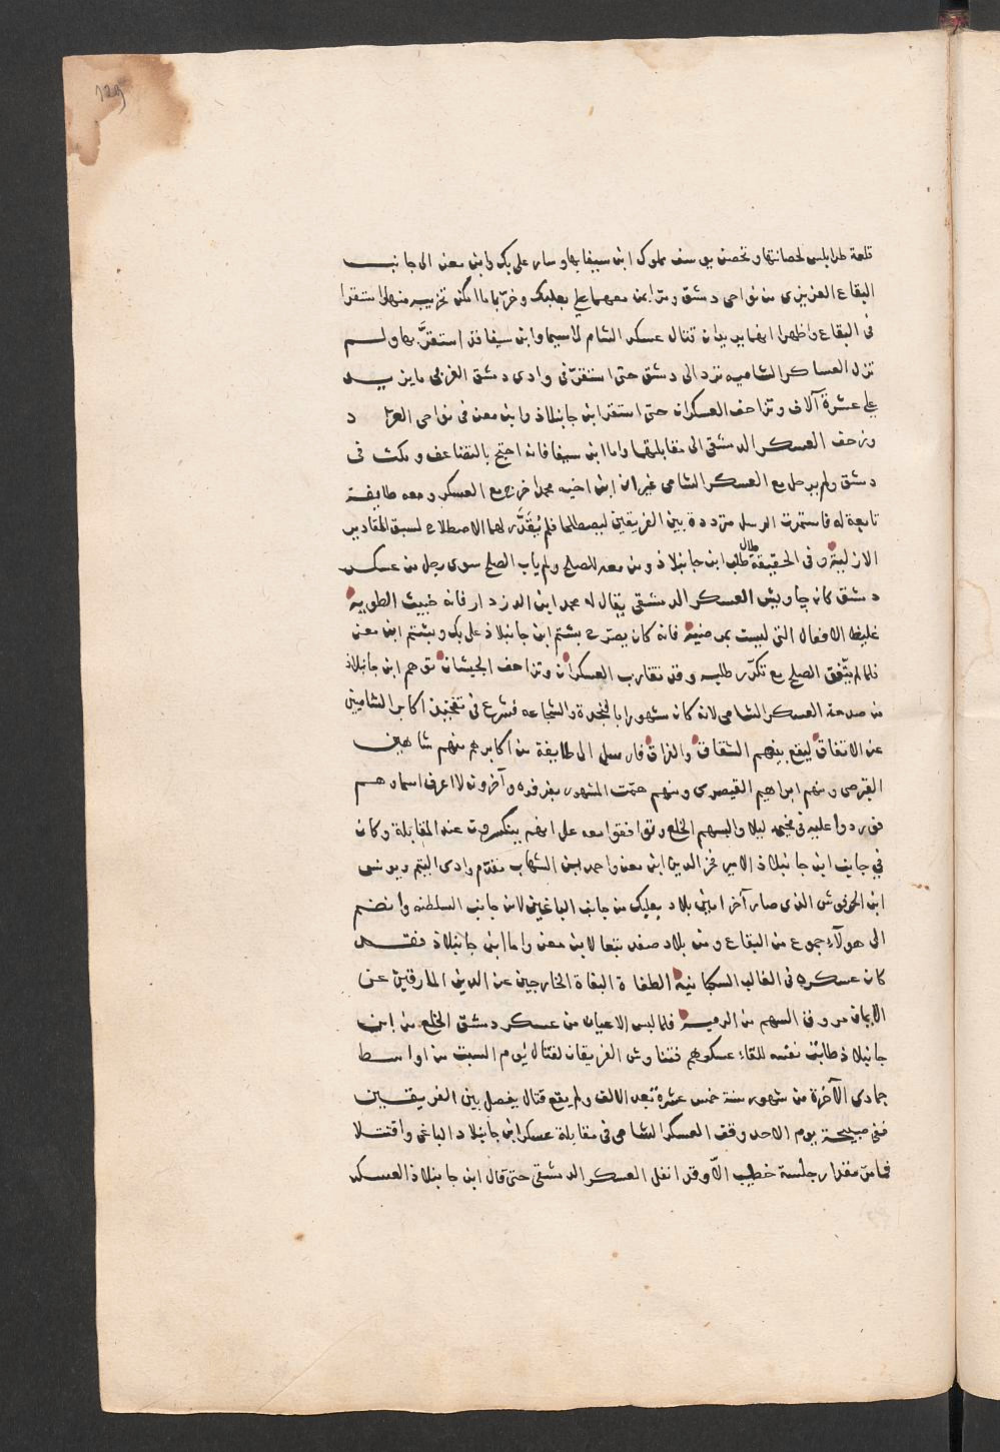 129
قلعة طرابلس لحصانتها وتحصن يوسف مملوك ابن سيفا بها وسار علي بك وابن معن الى جانب
البقاع العزيزى من نواحى دمشق ومرا بمن معهما على بعلبك وخربا ما امكن تخريبه منها واستقرا
فى البقاع واظهرا انهما يريدان قتال عسكر الشام لاسيما وابن سيفا قد استقرّ بها ولم
تزل العساكر الشاميه ترد الى دمشق حتى استقرّ فى وادى دمشق الغربى ما يزيد
على عشرة آلاف وتزاحف العسكران حتى استقر ابن جانبلاذ وابن معن فى نواحى العرّاد
وزحف العسكر الدمشقى الى مقابلتهما واما ابن سيفا فانه احتج بالتضاعف ومكث فى
دمشق ولم يرحل مع العسكر الشامى غير ان ابن اخيه محمدا خرج مع العسكر ومعه طايفة
تابعة له فاستمرت الرسل مترددة بين الفريقين ليصطلحا فلم يُقدَّر لهما الاصطلاح لسبق المقادير
الازلية وفى الحقيقة طال طلب ابن جانبلاذ ومن معه للصلح ولم ياب الصلح سوى رجل من عسكر
دمشق كان چاويش العسكر الدمشقى يقال له محمد ابن الدزدار فانه خبيث الطويه
غليظ الافعال التى ليست بمرضية فانه كان يصرح بشتم ابن جانبلاذ على بك وبشتم ابن معن
فلما لم يتّفق الصلح مع تكرّر طلبه وقد تقارب العسكران وتزاحف الجيشان توهم ابن جانبلاذ
من صدمة العسكر الشامى لانه كان مشهورا بالنجدة والشجاعه فشرع فى تفخيذ اكابر الشاميين
عن الاتفاق ليقع بينهم الشقاق والنزاق فارسل الى طايفة من اكابرهم منهم شاهين
القرمى ومنهم ابراهيم القيصرى ومنهم حمّت المشهور بقرقوه وآخرون لا اعرف اسماءهم
فوردوا عليه فى مخيمه ليلا والبسهم الخلع وتوافقوا معه على انهم ينكسرون عند المقابلة وكان
فى جانب ابن جانبلاذ الامير فخر الدين ابن معن واحمد ابن الشهاب مقدّم وادى التيم ويونس
ابن الحرفوش الذى صار آخرا امين بلاد بعلبك من جانب الباغين لا من جانب السلطنه وانضم
الى هولآء جموع من البقاع ومن بلاد صفد تبعا لابن معن واما ابن جانبلاذ فقد
كان عسكره فى الغالب السكبانية الطغاة البغاة الخارجين عن الدين المارقين عن
الايمان مروق السهم من الرميه فلما لبس الاعيان من عسكر دمشق الخلع من ابن
جانبلاذ طابت نفسه للقاء عسكرهم فتناوش الفريقان لقتال يوم السبت من اواسط
جمادى الآخرة من شهور سنة خمس عشرة بعد الالف ولم يقع قتال يفصل بين الفريقين
ففى صبيحة يوم الاحد وقف العسكر الشامى فى مقابلة عسكر ابن جانبلاذ الباغى واقتتلا
فما مرّ مقدار جلسة خطيب الّا وقد انفل العسكر الدمشقى حتى قال ابن جانبلاذ العسكر